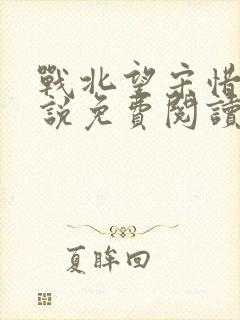 戰北望宋惜
說免費閱讀
夏眸回